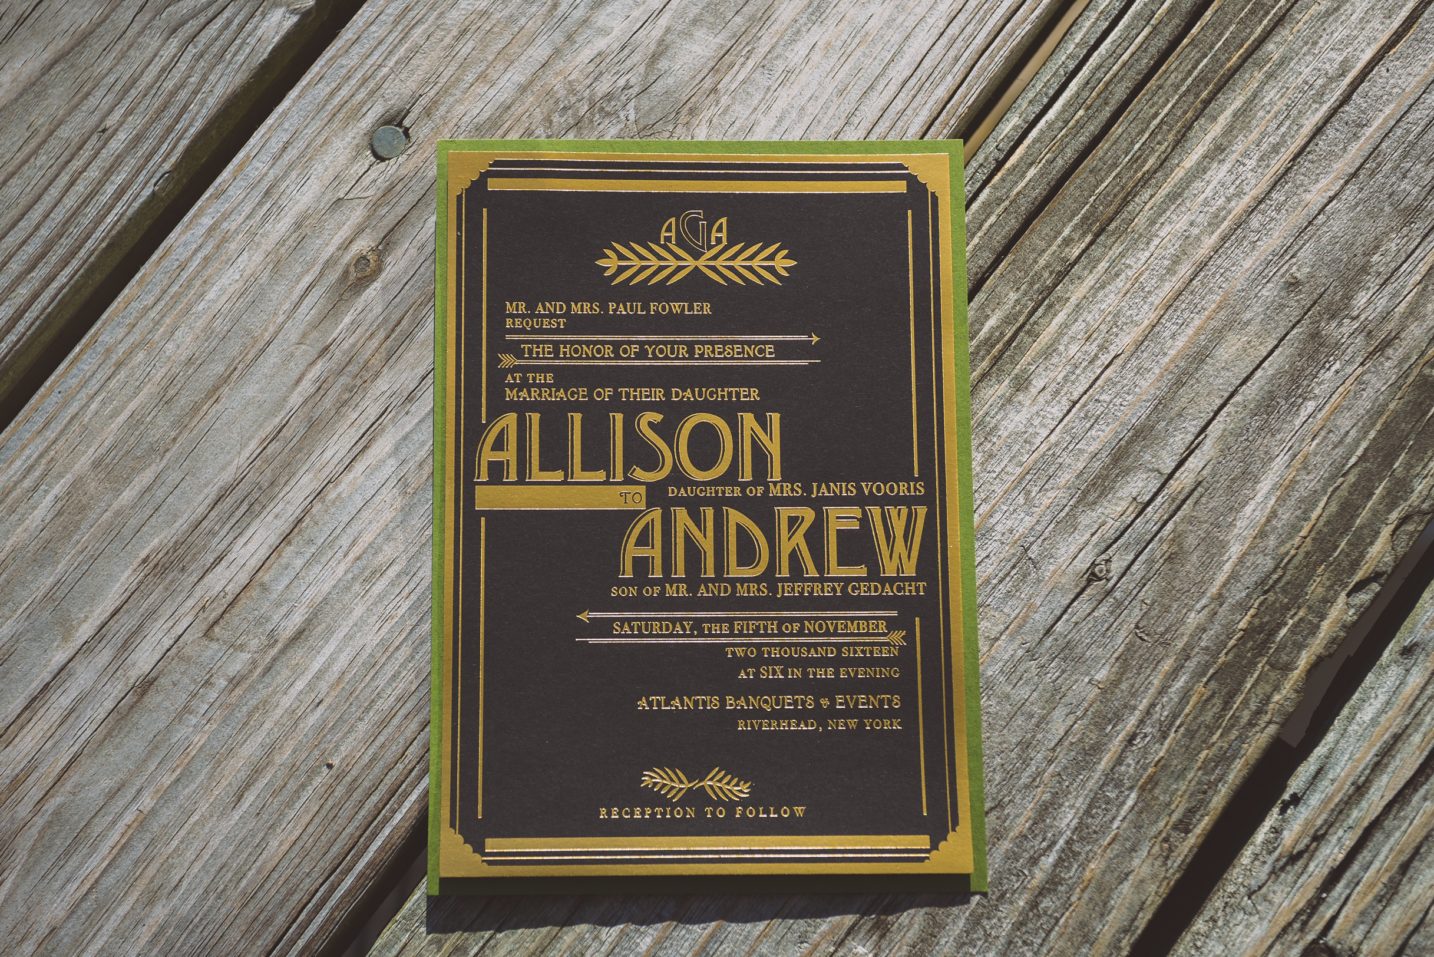 AGA
MR. AND MRS. PAUL FOWLER
REQUEST
THE HONOR OF YOUR PRESENCE
AT THE
MARRIAGE OF THEIR DAUGHTER
ALLISON
TO DAUGHTER OF MRS. JANIS VOORIS
ANDREW
SON OF MR. AND MRS. JEFFREY GEDACHT
SATURDAY, THE FIFTH OF NOVEMBER
TWO THOUSAND SIXTEEN
AT SIX IN THE EVENING
ATLANTIS BANQUETS & EVENTS
RIVERHEAD, NEW YORK
RECEPTION TO FOLLOW